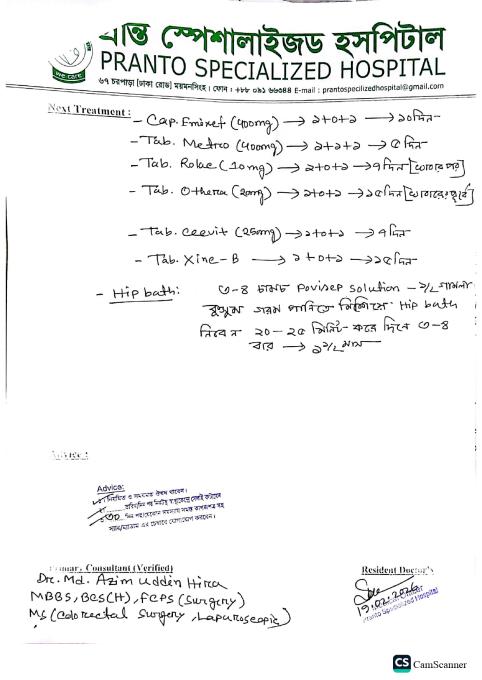 প্রান্ত স্পেশালাইজড হসপিটাল
PRANTO SPECIALIZED HOSPITAL
we care
৬৭ চরপাড়া [ঢাকা রোড] ময়মনসিংহ। ফোন : +৮৮ ০৯১ ৬৬০৪৪ E-mail : prantospecilizedhospital@gmail.com
Next Treatment :
- Cap. Emixef (400mg) → ১+০+১ → ১০ দিন
- Tab. Metro (400mg) → ১+১+১ → ৫ দিন
- Tab. Rolac (10mg) → ১+০+১ → ৭ দিন [খাবার পর]
- Tab. Othera (20mg) → ১+০+১ → ১৫ দিন [খাবারের পূর্বে]
- Tab. Ceevit (250mg) → ১+০+১ → ৭ দিন
- Tab. Xinc-B → ১+০+১ → ১৫ দিন
- Hip bath: ৩-৪ চামচ Povisep solution - ১/২ গামলা
কুসুম গরম পানিতে মিশিয়ে Hip bath
নিবেন ২০-২৫ মিনিট করে দিনে ৩-৪
বার → ১ ১/২ মাস
Advice :
Advice:
নিয়মিত ও সময়মত ঔষধ খাবেন।
Consultant (Verified)
Dr. Md. Azim Uddin Hira
MBBS, BCS(H), FCPS (Surgery)
MS (Colorectal Surgery, Laparoscopic)
Resident Doctor's
19.02.2026
Pranto Specialized Hospital
CS CamScanner